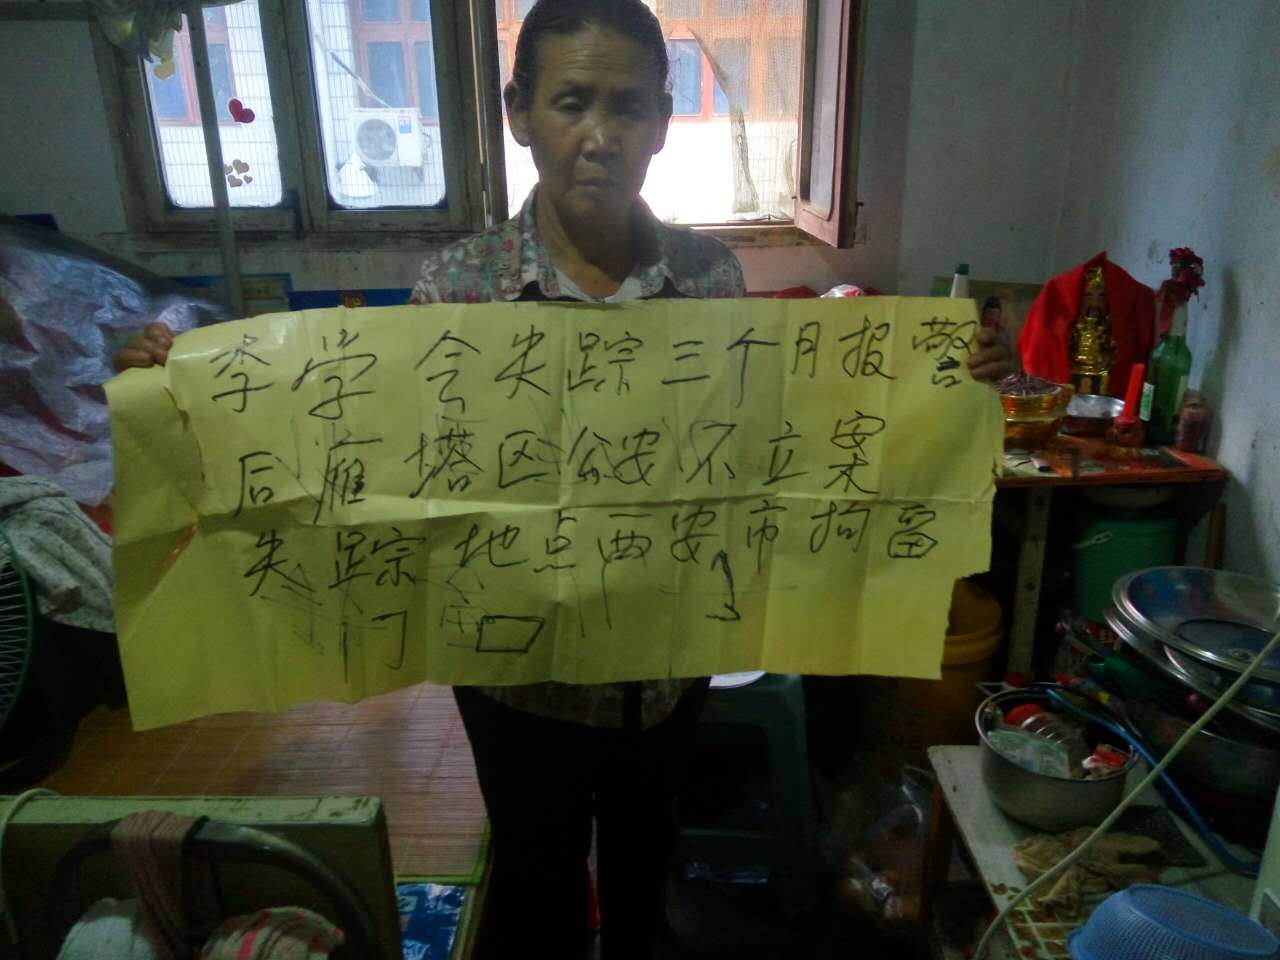 李学令失踪三个月报警
后雁塔区公安不立案
失踪地点西安市拘留
门口